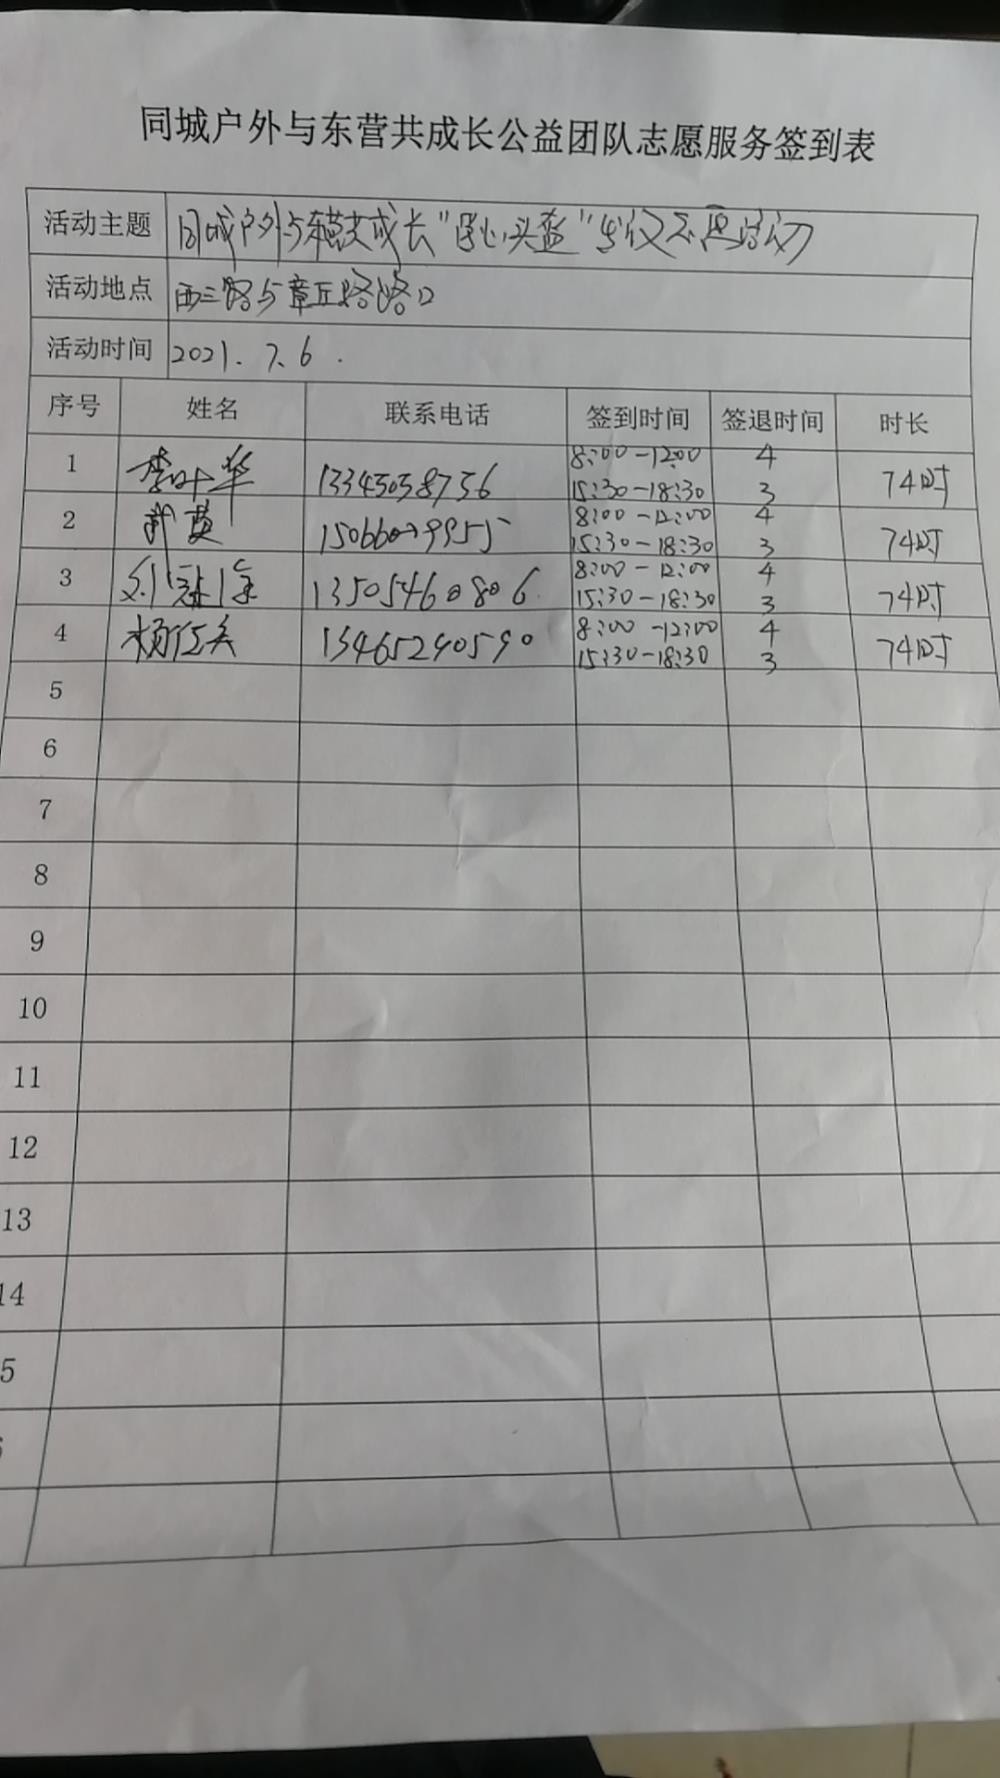 同城户外与东营共成长公益团队志愿服务签到表
活动主题 同城户外与东营共成长"安心头盔"
活动地点 西三路与章丘路路口
活动时间 2021.7.6.
序号 姓名 联系电话 签到时间 签退时间 时长
1 李叶华 13345058756 8:00-12:00 4 7小时
15:30-18:30 3
2 8:00-12:00 4 7小时
15:30-18:30 3
3 13505460806 8:00-12:00 4 7小时
15:30-18:30 3
4 13465290590 8:00-12:00 4 7小时
15:30-18:30 3
5
6
7
8
9
10
11
12
13
14
5